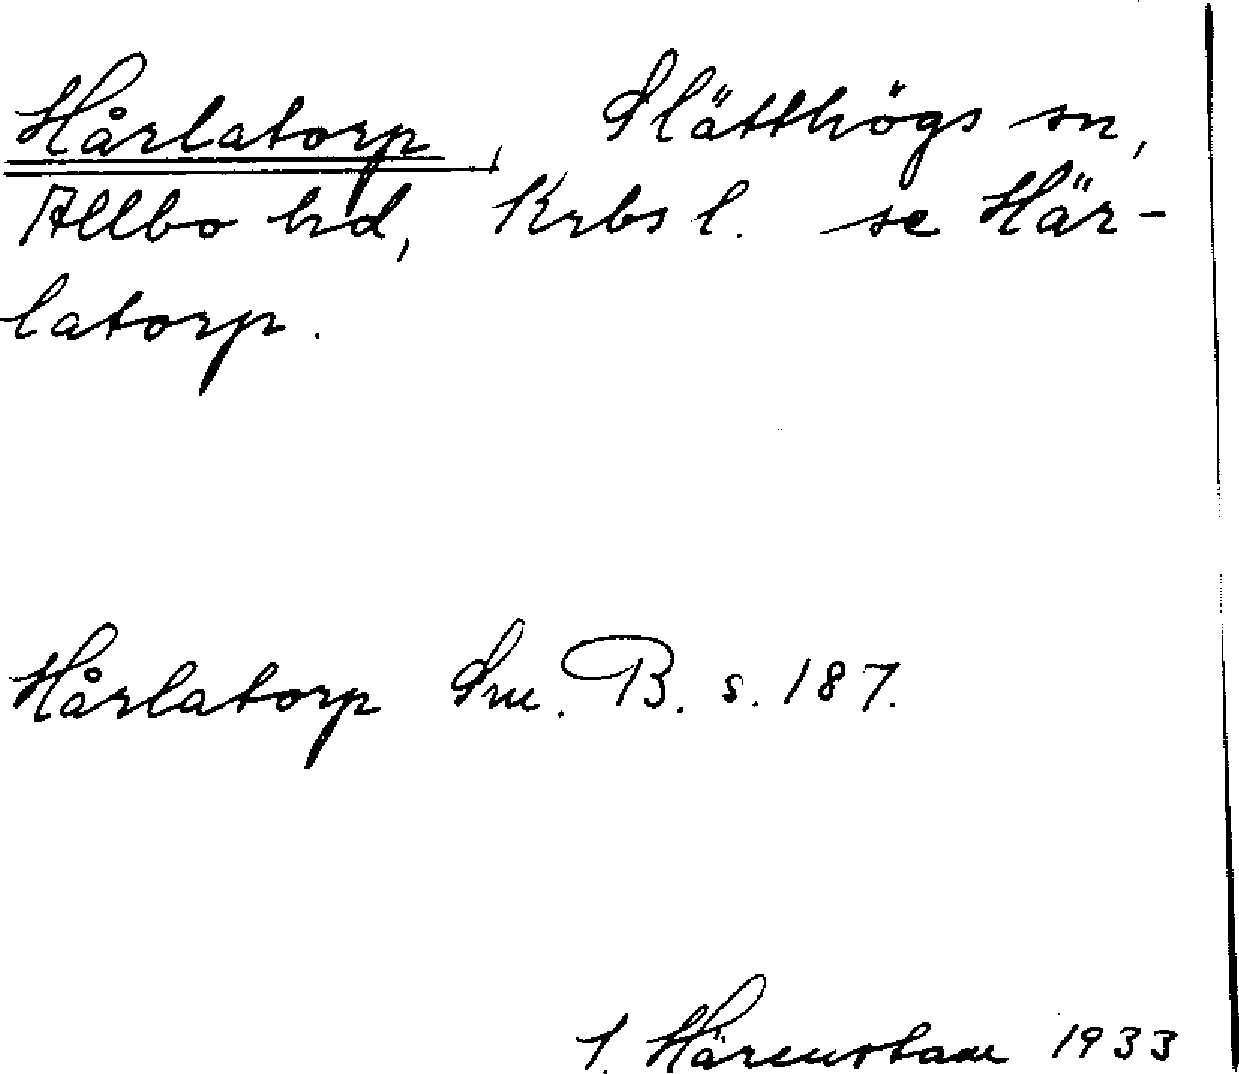 Hårlatorp, Slätthögs sn,
Allbo hd, Krbs l. se Här-
latorp.
Hårlatorp Sm. B. s. 187.
Härenstam 1933